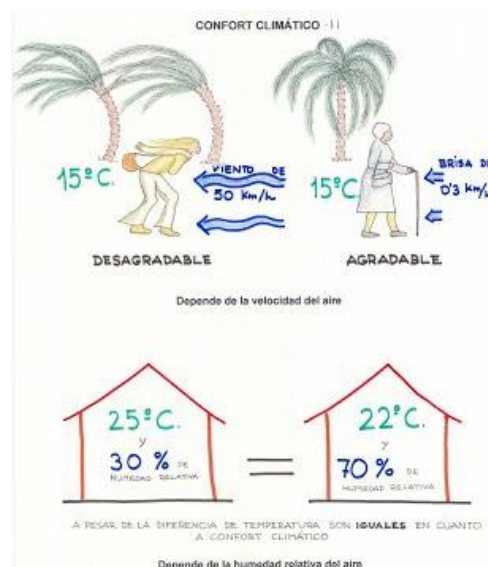 CONFORT CLIMÁTICO - II
15º C.
VIENTO DE
50 Km/h
15ºC
BRISA DE
0'3 Km/h
DESAGRADABLE
AGRADABLE
Depende de la velocidad del aire
25º C.
y
30 % DE
HUMEDAD RELATIVA
=
22ºC.
y
70% DE
HUMEDAD RELATIVA
A PESAR DE LA DIFERENCIA DE TEMPERATURA SON IGUALES EN CUANTO
A CONFORT CLIMÁTICO
Depende de la humedad relativa del aire